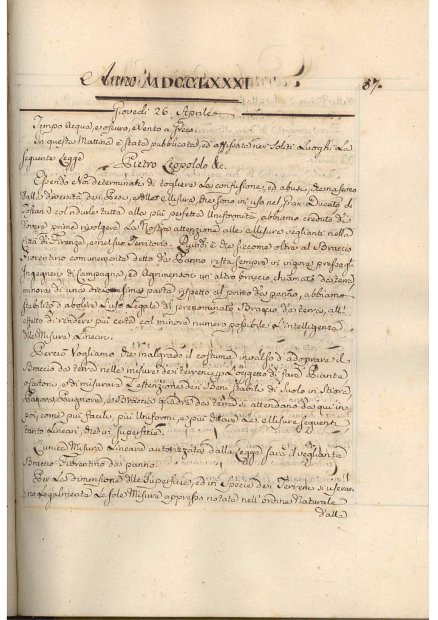 Anno MDCCLXXXI 87.
Giovedì 26. Aprile
Tempo Acqua, e oscuro, e Vento a
In questa Mattina è stata pubblicata, ed affissata ne' Soliti Luoghi La
Seguente Legge
Pietro Leopoldo &c.
Essendo Noi determinati di togliere La confusione, ed abusi, che nascono
dalla diversità dei Pesi, e delle Misure, che sono in uso nel Gran-Ducato di
Toscana col ridurle tutte alla più perfetta Uniformità, abbiamo creduto di
dovere prima rivolgere La Nostra attenzione alle Misure veglianti nella
Città di Firenze, e nel suo Territorio. Quindi è che siccome oltre al Braccio
Fiorentino comunemente detto da Panno resta sempre in vigore presso gli
Ingegneri di Campagna, ed Agrimensori un' altro braccio, chiamato da terra
minore di una parte rispetto al primo da panno, abbiamo
stabilito di abolire L'uso Legale di Braccio da terra, all'
effetto di rendere più certa col minore numero possibile L'intelligenza
delle Misure Lineari.
Perciò Vogliamo che malgrado il costume invalso d'adoprare il
Braccio da terra nelle misure dei terreni, L'oggetto di farne Piante
o cartoni, e di misurare L'estensione dei Beni Stabili di Suolo in Stiora,
Panora, Pugnora, e Braccia quadre da terra si attendano da qui in
poi, come più facile, più Uniformi, e più esatte Le Misure seguenti
tanto Lineari, che in Superficie.
L'unica Misura Lineare autorizzata dalla Legge sarà il vegliante
Braccio Fiorentino da panno.
Per La dimensione delle Superficie, ed in Specie dei Terreni si useran-
no Legalmente Le sole Misure appresso notate nell'ordine Naturale
dalla